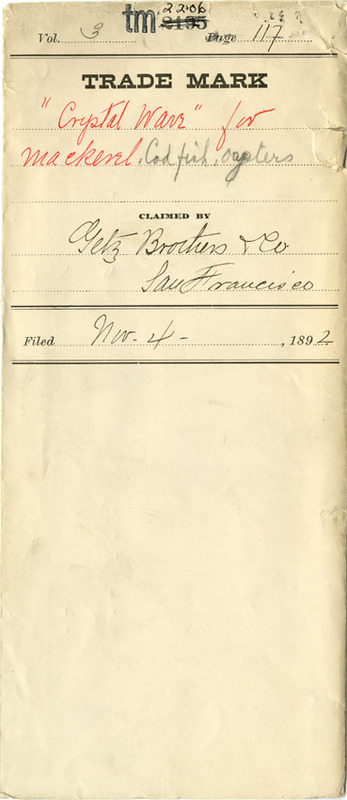 2206
tm 2195
Vol. 3 Page 117
TRADE MARK
"Crystal Wave" for
mackerel, Codfish, oysters
CLAIMED BY
Getz Brothers & Co
San Francisco
Filed Nov. 4 - , 1892